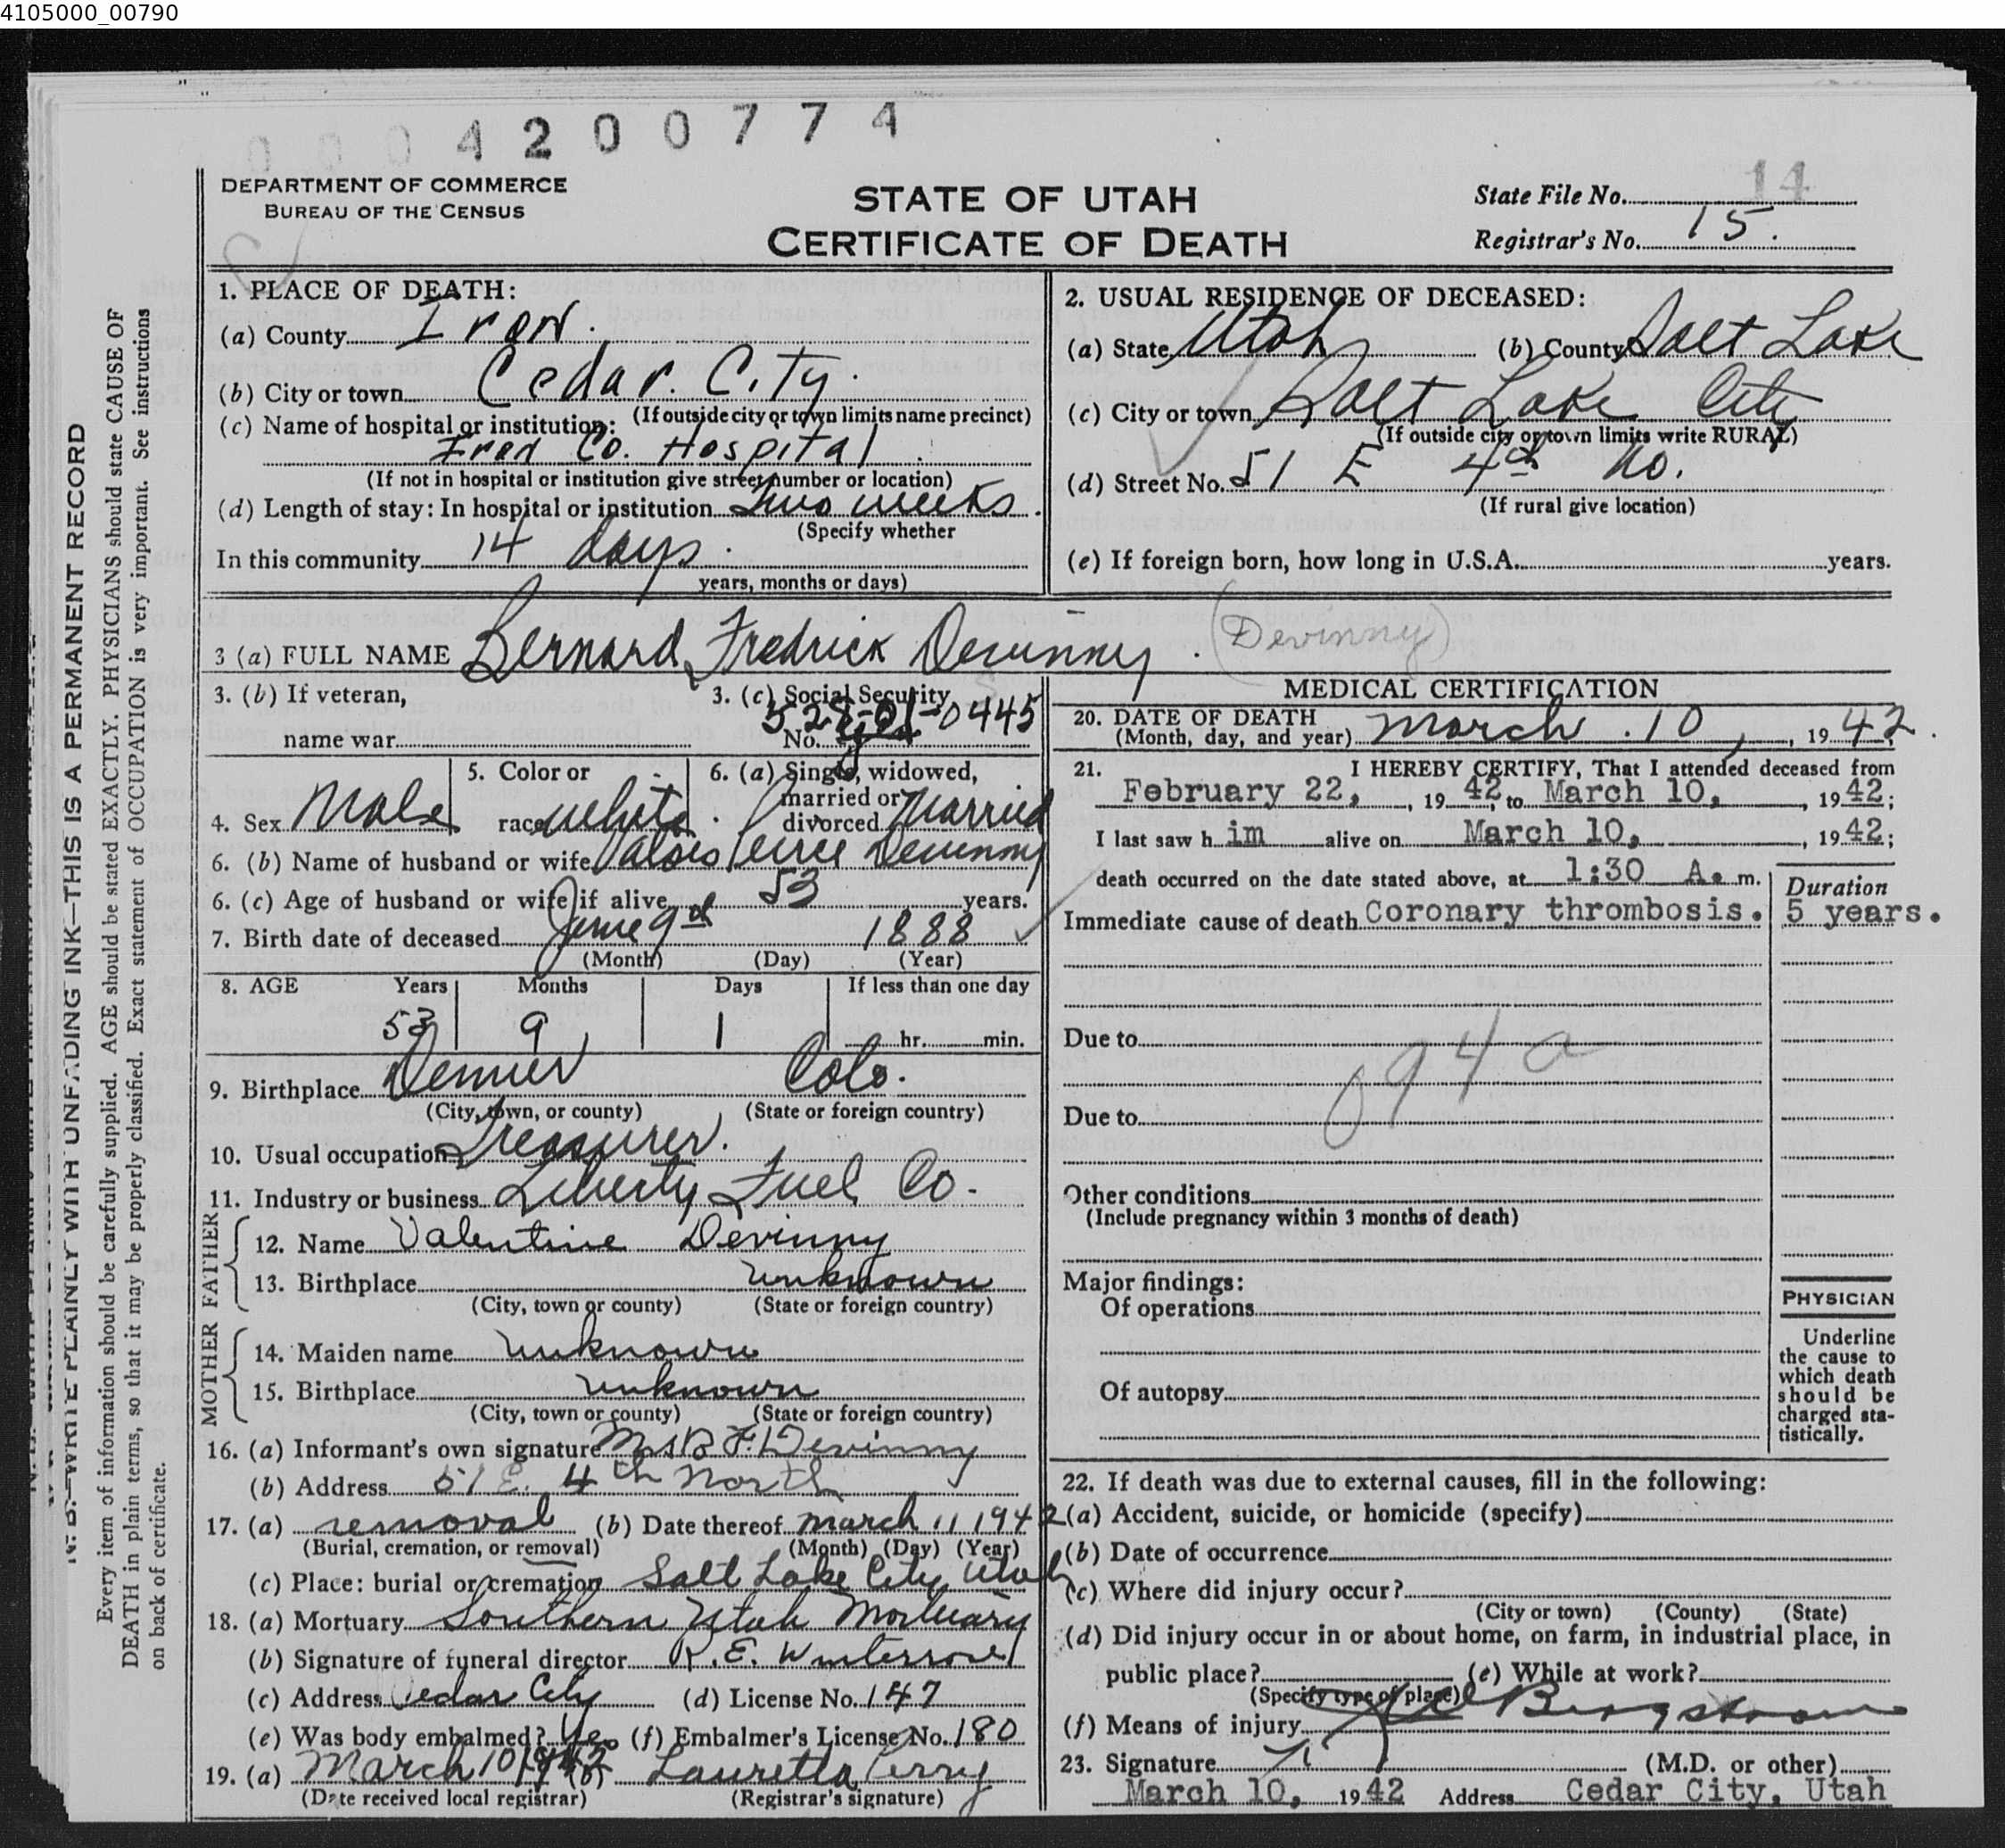 4105000_00790
0004200774
DEPARTMENT OF COMMERCE
BUREAU OF THE CENSUS
STATE OF UTAH
CERTIFICATE OF DEATH
State File No. 14
Registrar's No. 15.
N. B.—WRITE PLAINLY WITH UNFADING INK—THIS IS A PERMANENT RECORD
Every item of information should be carefully supplied. AGE should be stated EXACTLY. PHYSICIANS should state CAUSE OF
DEATH in plain terms, so that it may be properly classified. Exact statement of OCCUPATION is very important. See instructions
on back of certificate.
1. PLACE OF DEATH:
(a) County Iron.
(b) City or town Cedar City.
(If outside city or town limits name precinct)
(c) Name of hospital or institution:
Iron Co. Hospital
(If not in hospital or institution give street number or location)
(d) Length of stay: In hospital or institution Two weeks.
(Specify whether
In this community 14 days.
years, months or days)
2. USUAL RESIDENCE OF DECEASED:
(a) State Utah (b) County Salt Lake
(c) City or town Salt Lake City
(If outside city or town limits write RURAL)
(d) Street No. 51 E 4th No.
(If rural give location)
(e) If foreign born, how long in U.S.A. years.
3 (a) FULL NAME Bernard Fredrick Devinny. (Devinny)
3. (b) If veteran,
name war
3. (c) Social Security
No. 528-01-0445
4. Sex Male
5. Color or
race White.
6. (a) Single, widowed,
married or
divorced Married
6. (b) Name of husband or wife Peirce Devinny
6. (c) Age of husband or wife if alive 53 years.
7. Birth date of deceased June 9th 1888
(Month) (Day) (Year)
8. AGE Years Months Days If less than one day
53 9 1 hr. min.
9. Birthplace Denver Colo.
(City, town, or county) (State or foreign country)
10. Usual occupation Treasurer.
11. Industry or business Liberty Fuel Co.
FATHER
12. Name Valentine Devinny
13. Birthplace unknown
(City, town or county) (State or foreign country)
MOTHER
14. Maiden name unknown
15. Birthplace unknown
(City, town or county) (State or foreign country)
16. (a) Informant's own signature Mrs B F. Devinny
(b) Address 51 E. 4th North
17. (a) removal (b) Date thereof March 11 1942
(Burial, cremation, or removal) (Month) (Day) (Year)
(c) Place: burial or cremation Salt Lake City Utah
18. (a) Mortuary Southern Utah Mortuary
(b) Signature of funeral director R. E. Winterrose
(c) Address Cedar City (d) License No. 147
(e) Was body embalmed? Yes (f) Embalmer's License No. 180
19. (a) March 10 1942 (b) Lauretta Perry
(Date received local registrar) (Registrar's signature)
MEDICAL CERTIFICATION
20. DATE OF DEATH
(Month, day, and year) March 10, 1942.
21. I HEREBY CERTIFY, That I attended deceased from
February 22, 1942, to March 10, 1942;
I last saw him alive on March 10, 1942;
death occurred on the date stated above, at 1:30 A. m.
Duration
Immediate cause of death Coronary thrombosis. 5 years.
Due to
094a
Due to
Other conditions
(Include pregnancy within 3 months of death)
Major findings:
Of operations
Of autopsy
PHYSICIAN
Underline
the cause to
which death
should be
charged sta-
tistically.
22. If death was due to external causes, fill in the following:
(a) Accident, suicide, or homicide (specify)
(b) Date of occurrence
(c) Where did injury occur?
(City or town) (County) (State)
(d) Did injury occur in or about home, on farm, in industrial place, in
public place? (e) While at work?
(Specify type of place)
(f) Means of injury
23. Signature Bergstrom (M.D. or other)
March 10, 1942 Address Cedar City, Utah